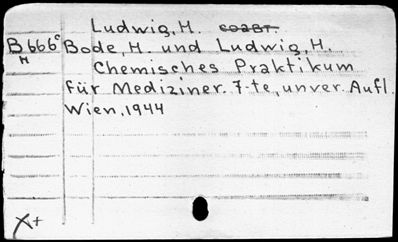 Ludwig, H. соавт.
B666° Bode, H. und Ludwig, H.
M Chemisches Praktikum
für Mediziner. 7-te, unver. Aufl.
Wien, 1944
X+